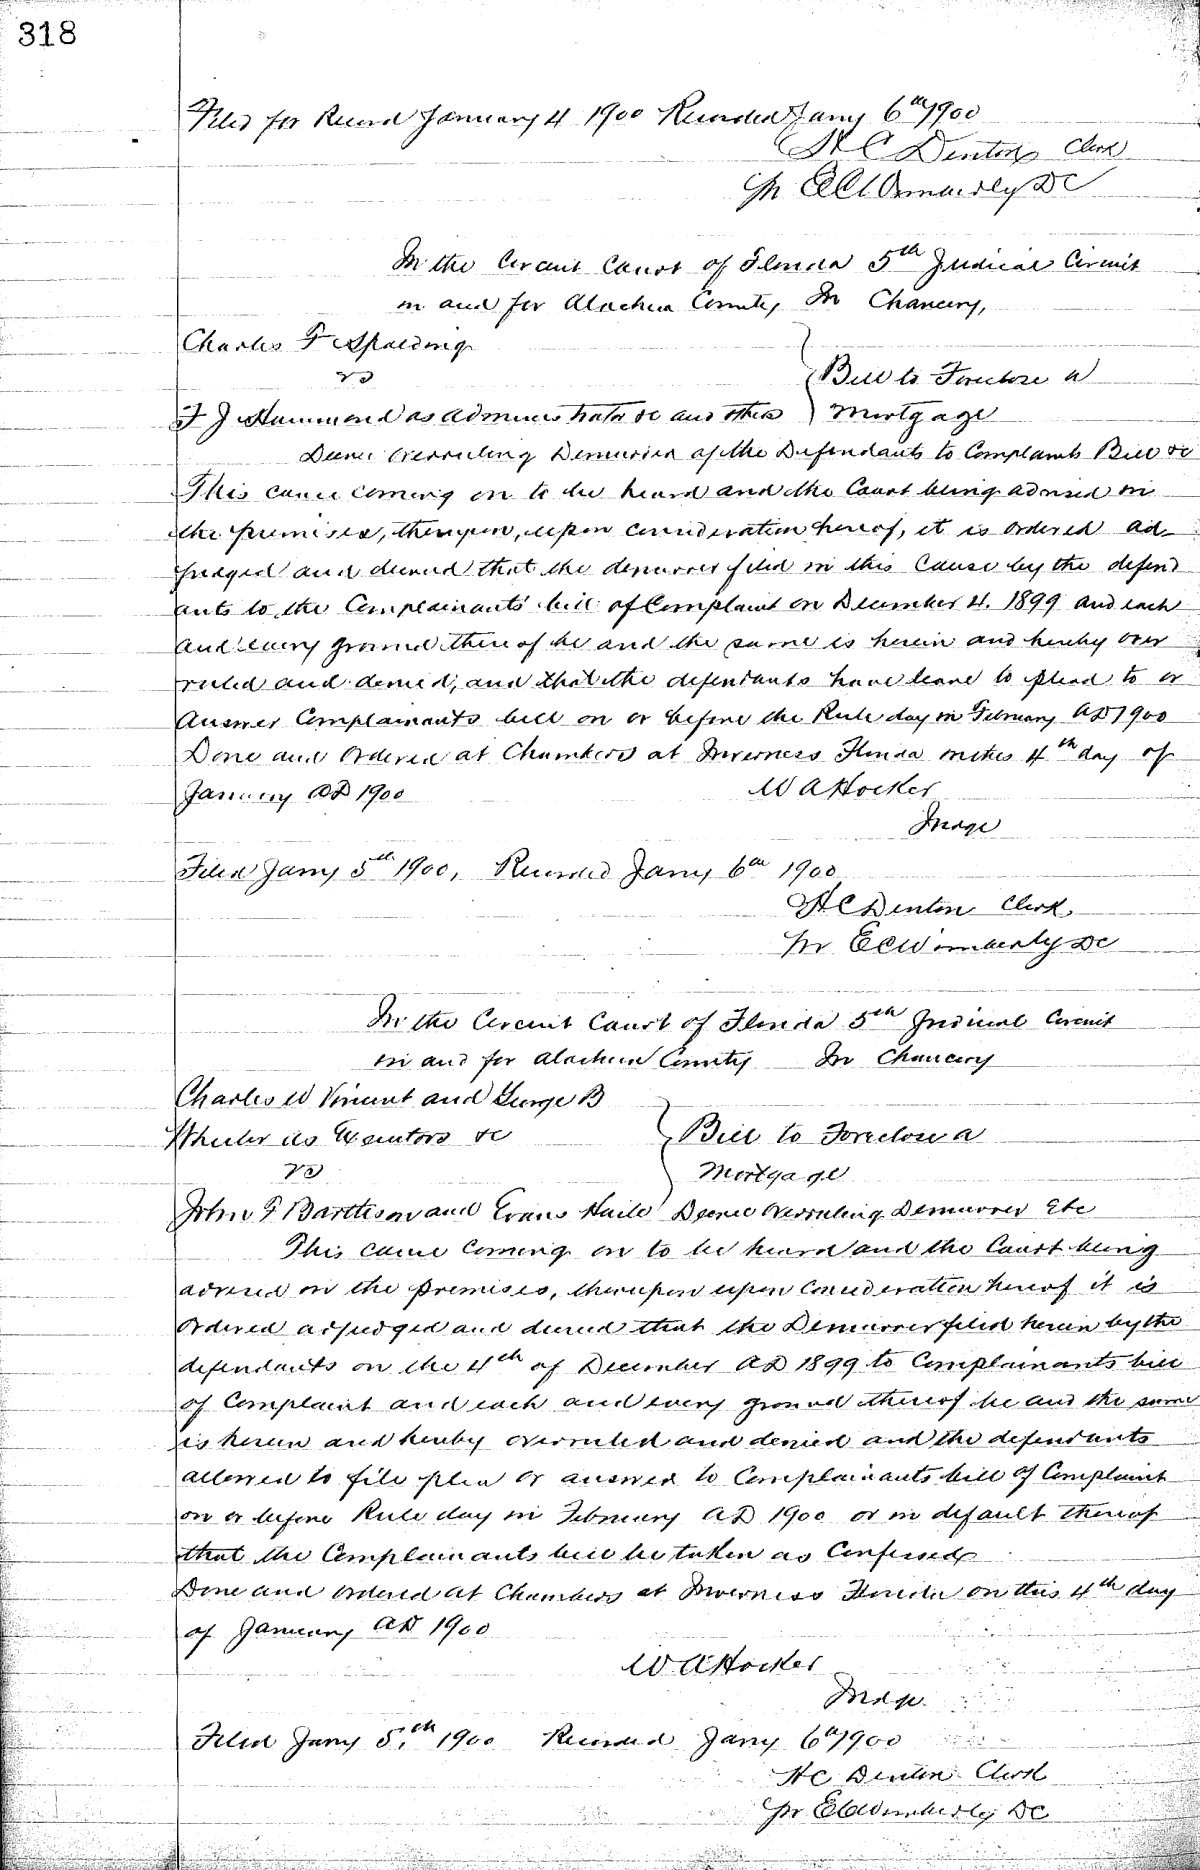 318
Filed for Record January 4 1900 Recorded Jany 6th 1900
H C Denton Clerk
Pr E C Wimberly DC
In the Circuit Court of Florida 5th Judicial Circuit
in and for Alachua County In Chancery,
Charles F Spalding
vs
Bill to Foreclose a
F J Hammond as Administrator &c and others Mortgage
Decree overruling Demurrer of the Defendants to Complaints Bill &c
This cause coming on to be heard and the Court being advised in
the premises, thereupon, upon consideration hereof, it is ordered ad-
judged and decreed that the demurrer filed in this Cause by the defend
ants to the Complainants' bill of Complaint on December 4. 1899 and each
and every ground thereof be and the same is herein and hereby over
ruled and denied, and that the defendants have leave to plead to or
Answer Complainants bill on or before the Rule day in February AD 1900
Done and Ordered at Chambers at Inverness Florida on this 4th day of
January AD 1900 W A Hocker
Judge
Filed Jany 5th 1900, Recorded Jany 6th 1900
H C Denton Clerk,
Pr E C Wimberly DC
In the Circuit Court of Florida 5th Judicial Circuit
in and for Alachua County In Chancery
Charles W Vincent and George B
Wheeler as Executors &c Bill to Foreclose a
vs Mortgage
John F Barttison and Evans Haile Decree Overruling Demurrer Etc
This cause Coming on to be heard and the Court being
advised in the premises, thereupon upon consideration hereof it is
Ordered adjudged and decreed that the Demurrer filed herein by the
defendants on the 4th of December AD 1899 to Complainants bill
of Complaint and each and every ground thereof be and the same
is herein and hereby overruled and denied and the defendants
allowed to file plea or answer to Complainants bill of Complaint
on or before Rule day in February AD 1900 or in default thereof
that the Complainants bill be taken as Confessed
Done and ordered at Chambers at Inverness Florida on this 4th day
of January AD 1900
W A Hocker
Judge.
Filed Jany 5th 1900 Recorded Jany 6th 1900
H C Denton Clerk
Pr E C Wimberly DC